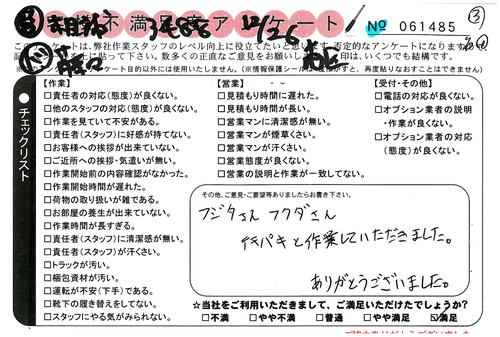 不満足度アンケート
No 061485
③
このアンケートは、弊社作業スタッフのレベル向上に役立てたいと思います。否定的なアンケートになりますが
上に貼って下さい。数多くの正直なご意見をお願いし 印は、いくつでも結構です。
アンケート目的以外には使用いたしません。（※情報保護シール は、再度貼りなおすことはできません）
チェックリスト
【作業】
□責任者の対応（態度）が良くない。
□他のスタッフの対応（態度）が良くない。
□作業を見ていて不安がある。
□責任者（スタッフ）に好感が持てない。
□お客様への挨拶が出来ていない。
□ご近所への挨拶・気遣いが無い。
□作業開始前の内容確認がなかった。
□作業開始時間が遅れた。
□荷物の取り扱いが雑である。
□お部屋の養生が出来ていない。
□作業時間が長すぎる。
□責任者（スタッフ）に清潔感が無い。
□責任者（スタッフ）が汗くさい。
□トラックが汚い。
□梱包資材が汚い。
□運転が安全（下手）である。
□靴下の履き替えをしてない。
□スタッフにやる気がみられない。
【営業】
□見積もり時間に遅れた。
□見積もり時間が長い。
□営業マンに清潔感が無い。
□営業マンが煙草くさい。
□営業マンが汗くさい。
□営業態度が良くない。
□営業の説明と作業が一致してない。
【受付・その他】
□電話の対応が良くない。
□オプション業者の説明
・作業が良くない。
□オプション業者の対応
（態度）が良くない。
その他、ご意見・ご要望等ありましたらお書き下さい。
フジタさん フクダさん
テキパキと作業していただきました。
ありがとうございました。
☆当社をご利用いただきまして、ご満足いただけたでしょうか？
□不満 □やや不満 □普通 □やや満足 ☑満足